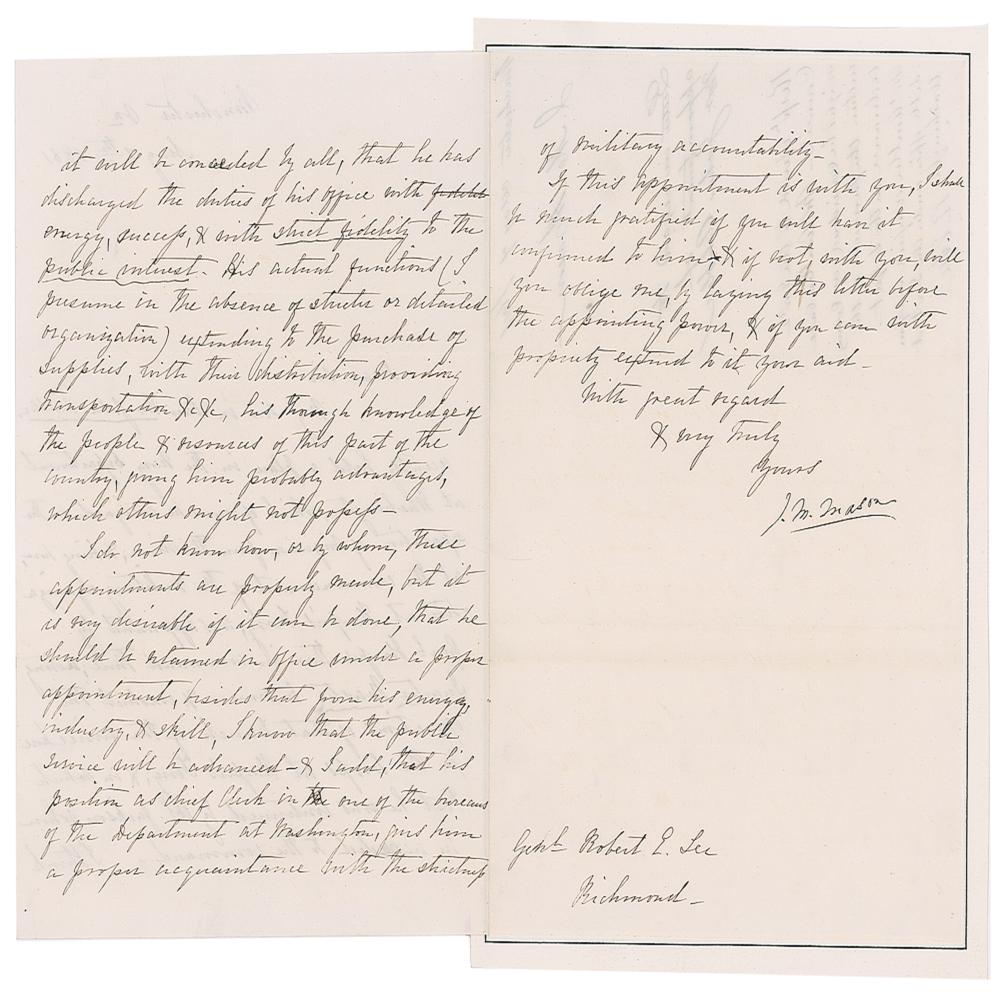 it will be conceded by all, that he has
discharged the duties of his office with
energy, success, & with strict fidelity to the
public interest. His actual functions (I
presume in the absence of stricter or detailed
organization) extending to the purchase of
supplies, with their distribution, providing
transportation &c &c, his thorough knowledge of
the people & resources of this part of the
country, giving him probably advantages,
which others might not possess—
I do not know how, or by whom, these
appointments are properly made, but it
is very desirable if it can be done, that he
should be retained in office under a proper
appointment, besides that from his energy,
industry, & skill, I know that the public
service will be advanced — & I add, that his
position as chief Clerk in one of the bureaus
of the Department at Washington, gives him
a proper acquaintance with the strictness
of military accountability—
If this appointment is with you, I shall
be much gratified if you will have it
confirmed to him, & if not, with you, will
you oblige me, by laying this letter before
the appointing power, & if you can with
propriety extend to it your aid—
With great regard
& very truly
Yours
J. M. Mason
Genl Robert E. Lee
Richmond—